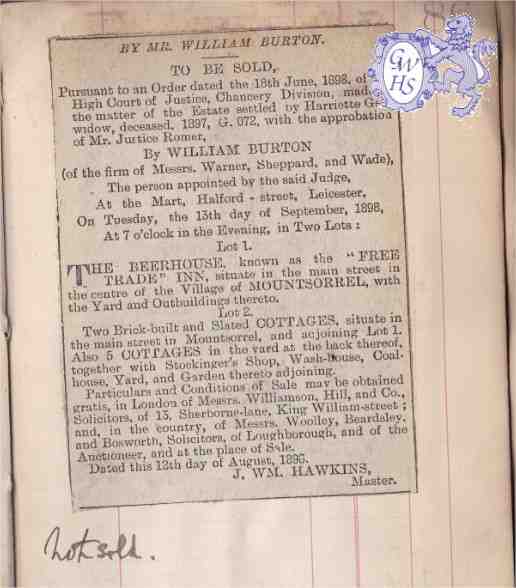 BY MR. WILLIAM BURTON.
TO BE SOLD,
Pursuant to an Order dated the 18th June, 1898, of
High Court of Justice, Chancery Division, mad
the matter of the Estate settled by Harriette G
widow, deceased, 1897, G. 972, with the approbation
of Mr. Justice Romer,
By WILLIAM BURTON
(of the firm of Messrs. Warner, Sheppard, and Wade),
The person appointed by the said Judge,
At the Mart, Halford-street, Leicester,
On Tuesday, the 13th day of September, 1898,
At 7 o'clock in the Evening, in Two Lots:
Lot 1.
THE BEERHOUSE, known as the "FREE
TRADE" INN, situate in the main street in
the centre of the Village of MOUNTSORREL, with
the Yard and Outbuildings thereto.
Lot 2.
Two Brick-built and Slated COTTAGES, situate in
the main street in Mountsorrel, and adjoining Lot 1.
Also 5 COTTAGES in the yard at the back thereof,
together with Stockinger's Shop, Wash-house, Coal-
house, Yard, and Garden thereto adjoining.
Particulars and Conditions of Sale may be obtained
gratis, in London of Messrs. Williamson, Hill, and Co.,
Solicitors, of 13, Sherborne-lane, King William-street;
and, in the country, of Messrs. Woolley, Beardsley,
and Bosworth, Solicitors, of Loughborough, and of the
Auctioneer, and at the place of Sale.
Dated this 12th day of August, 1898.
J. WM. HAWKINS,
Master.
Not sold.
GWHS